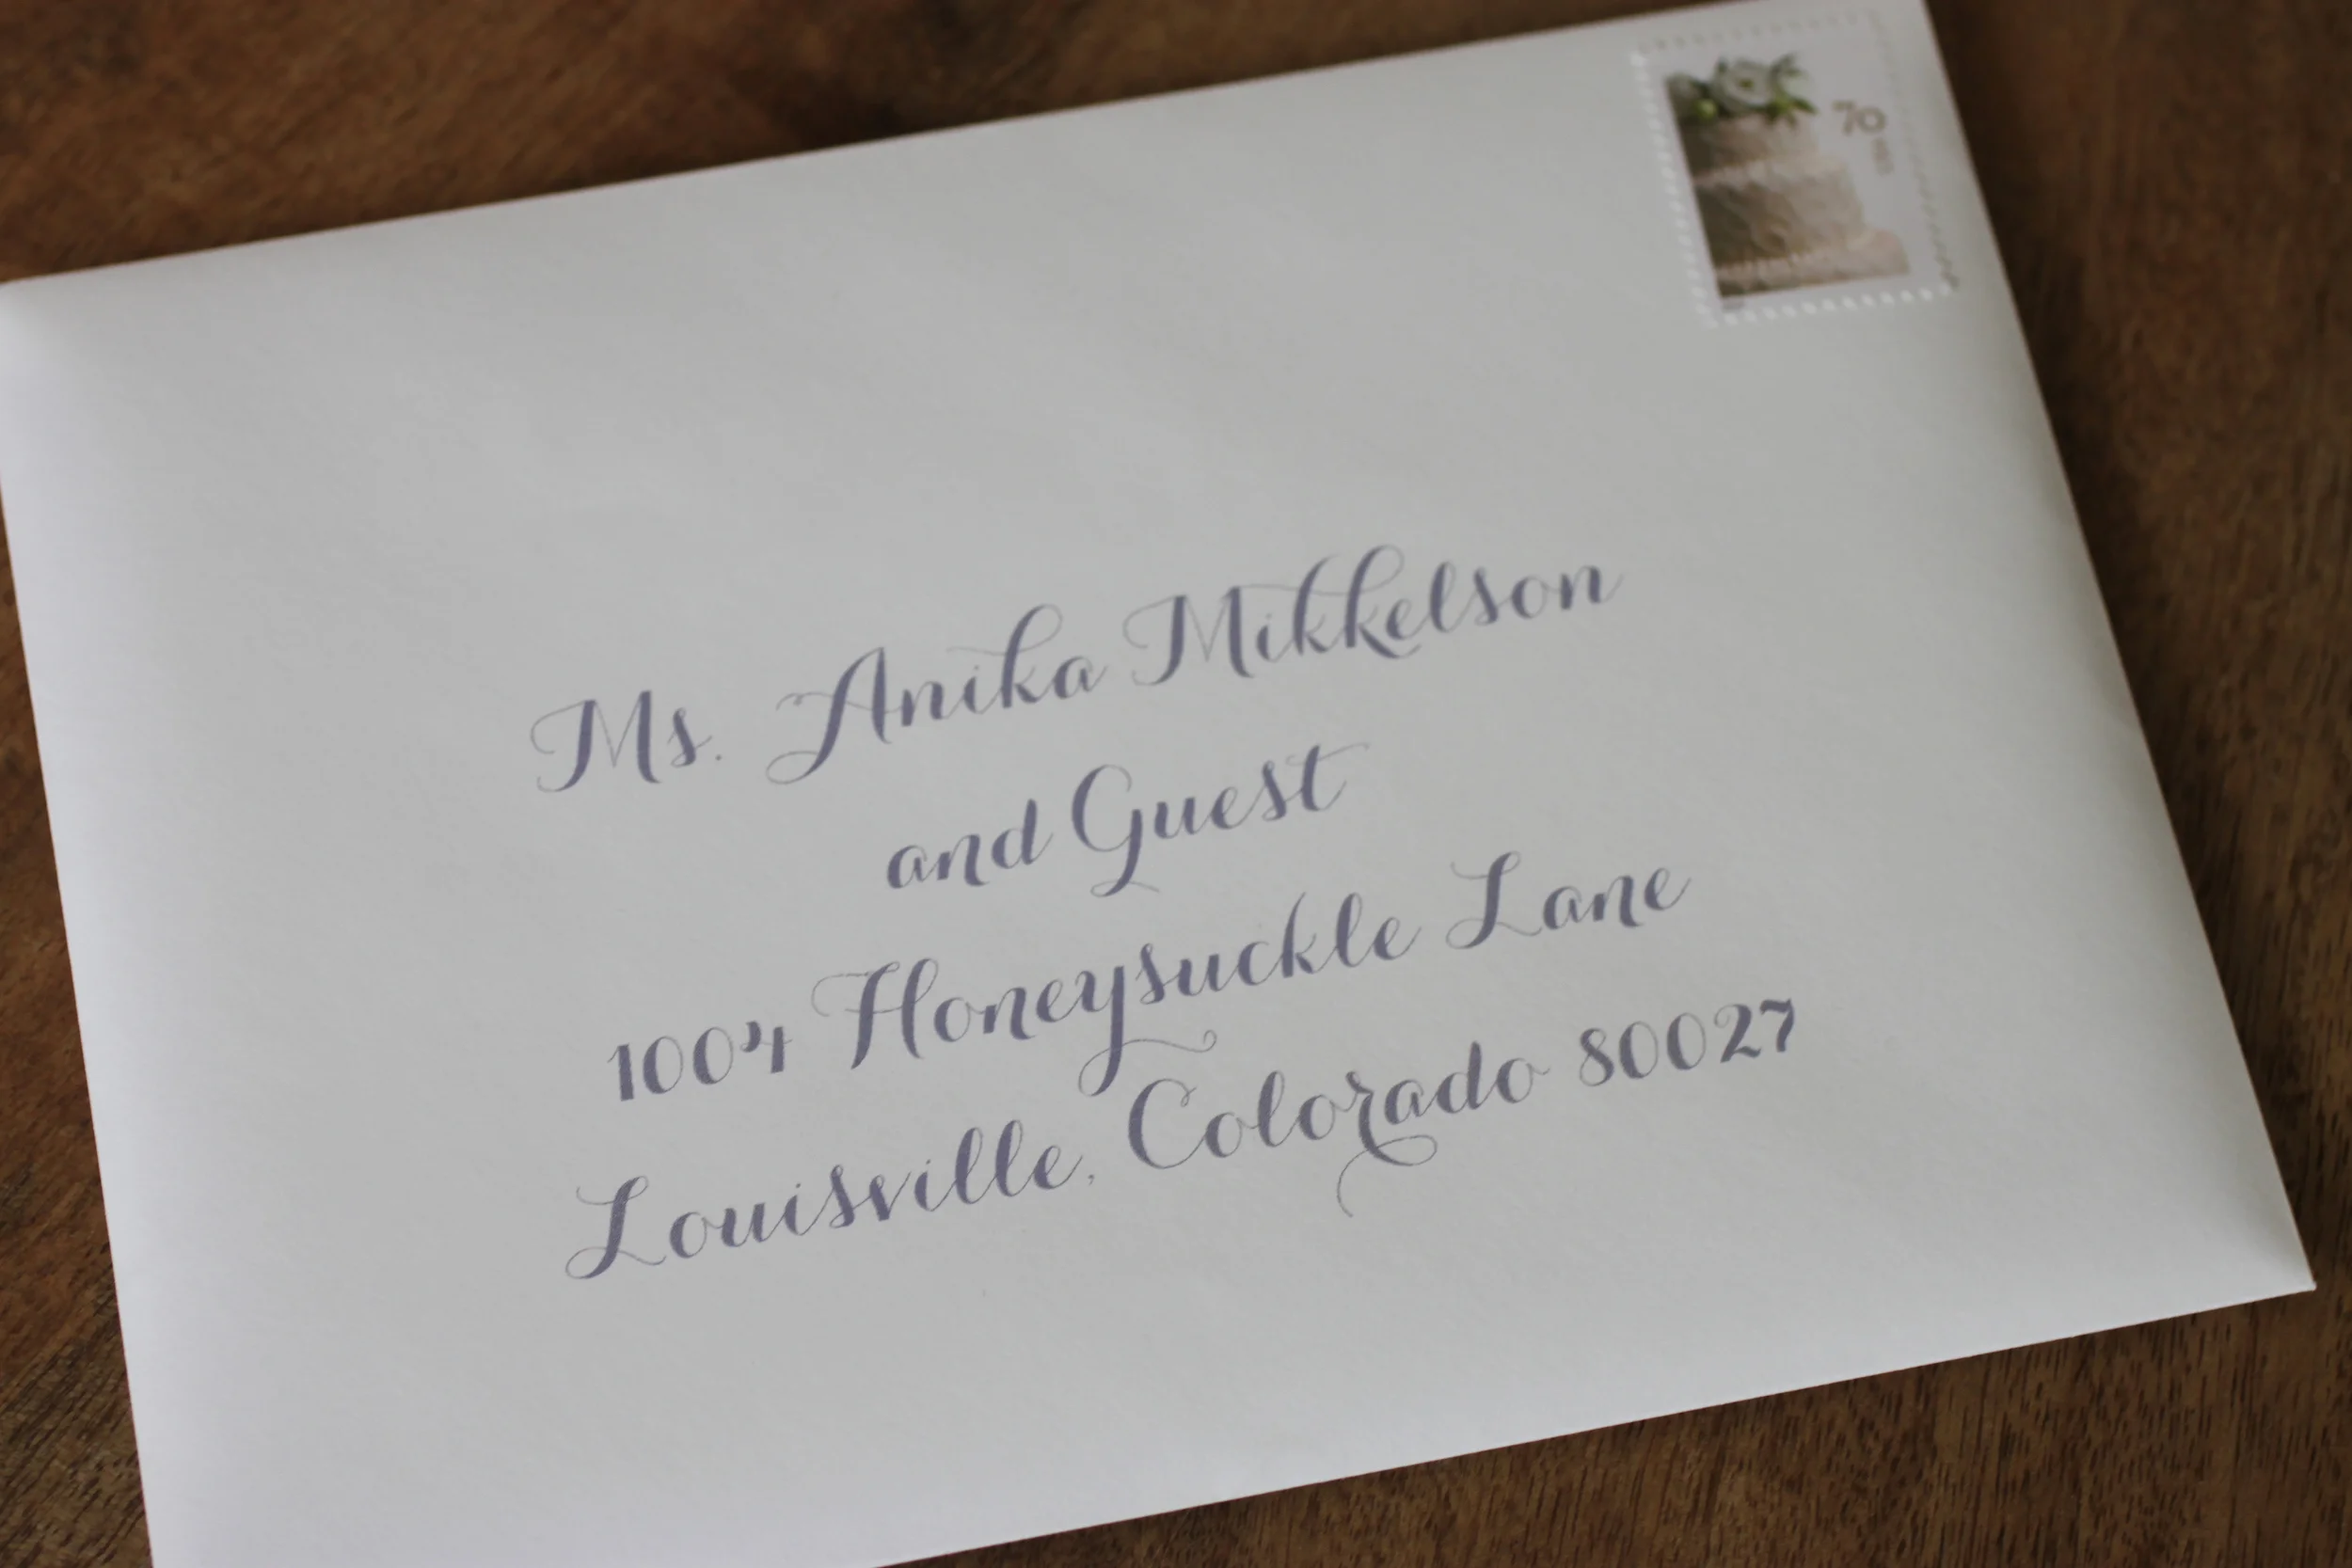 70
USA
Ms. Anika Mikkelson
and Guest
1004 Honeysuckle Lane
Louisville, Colorado 80027